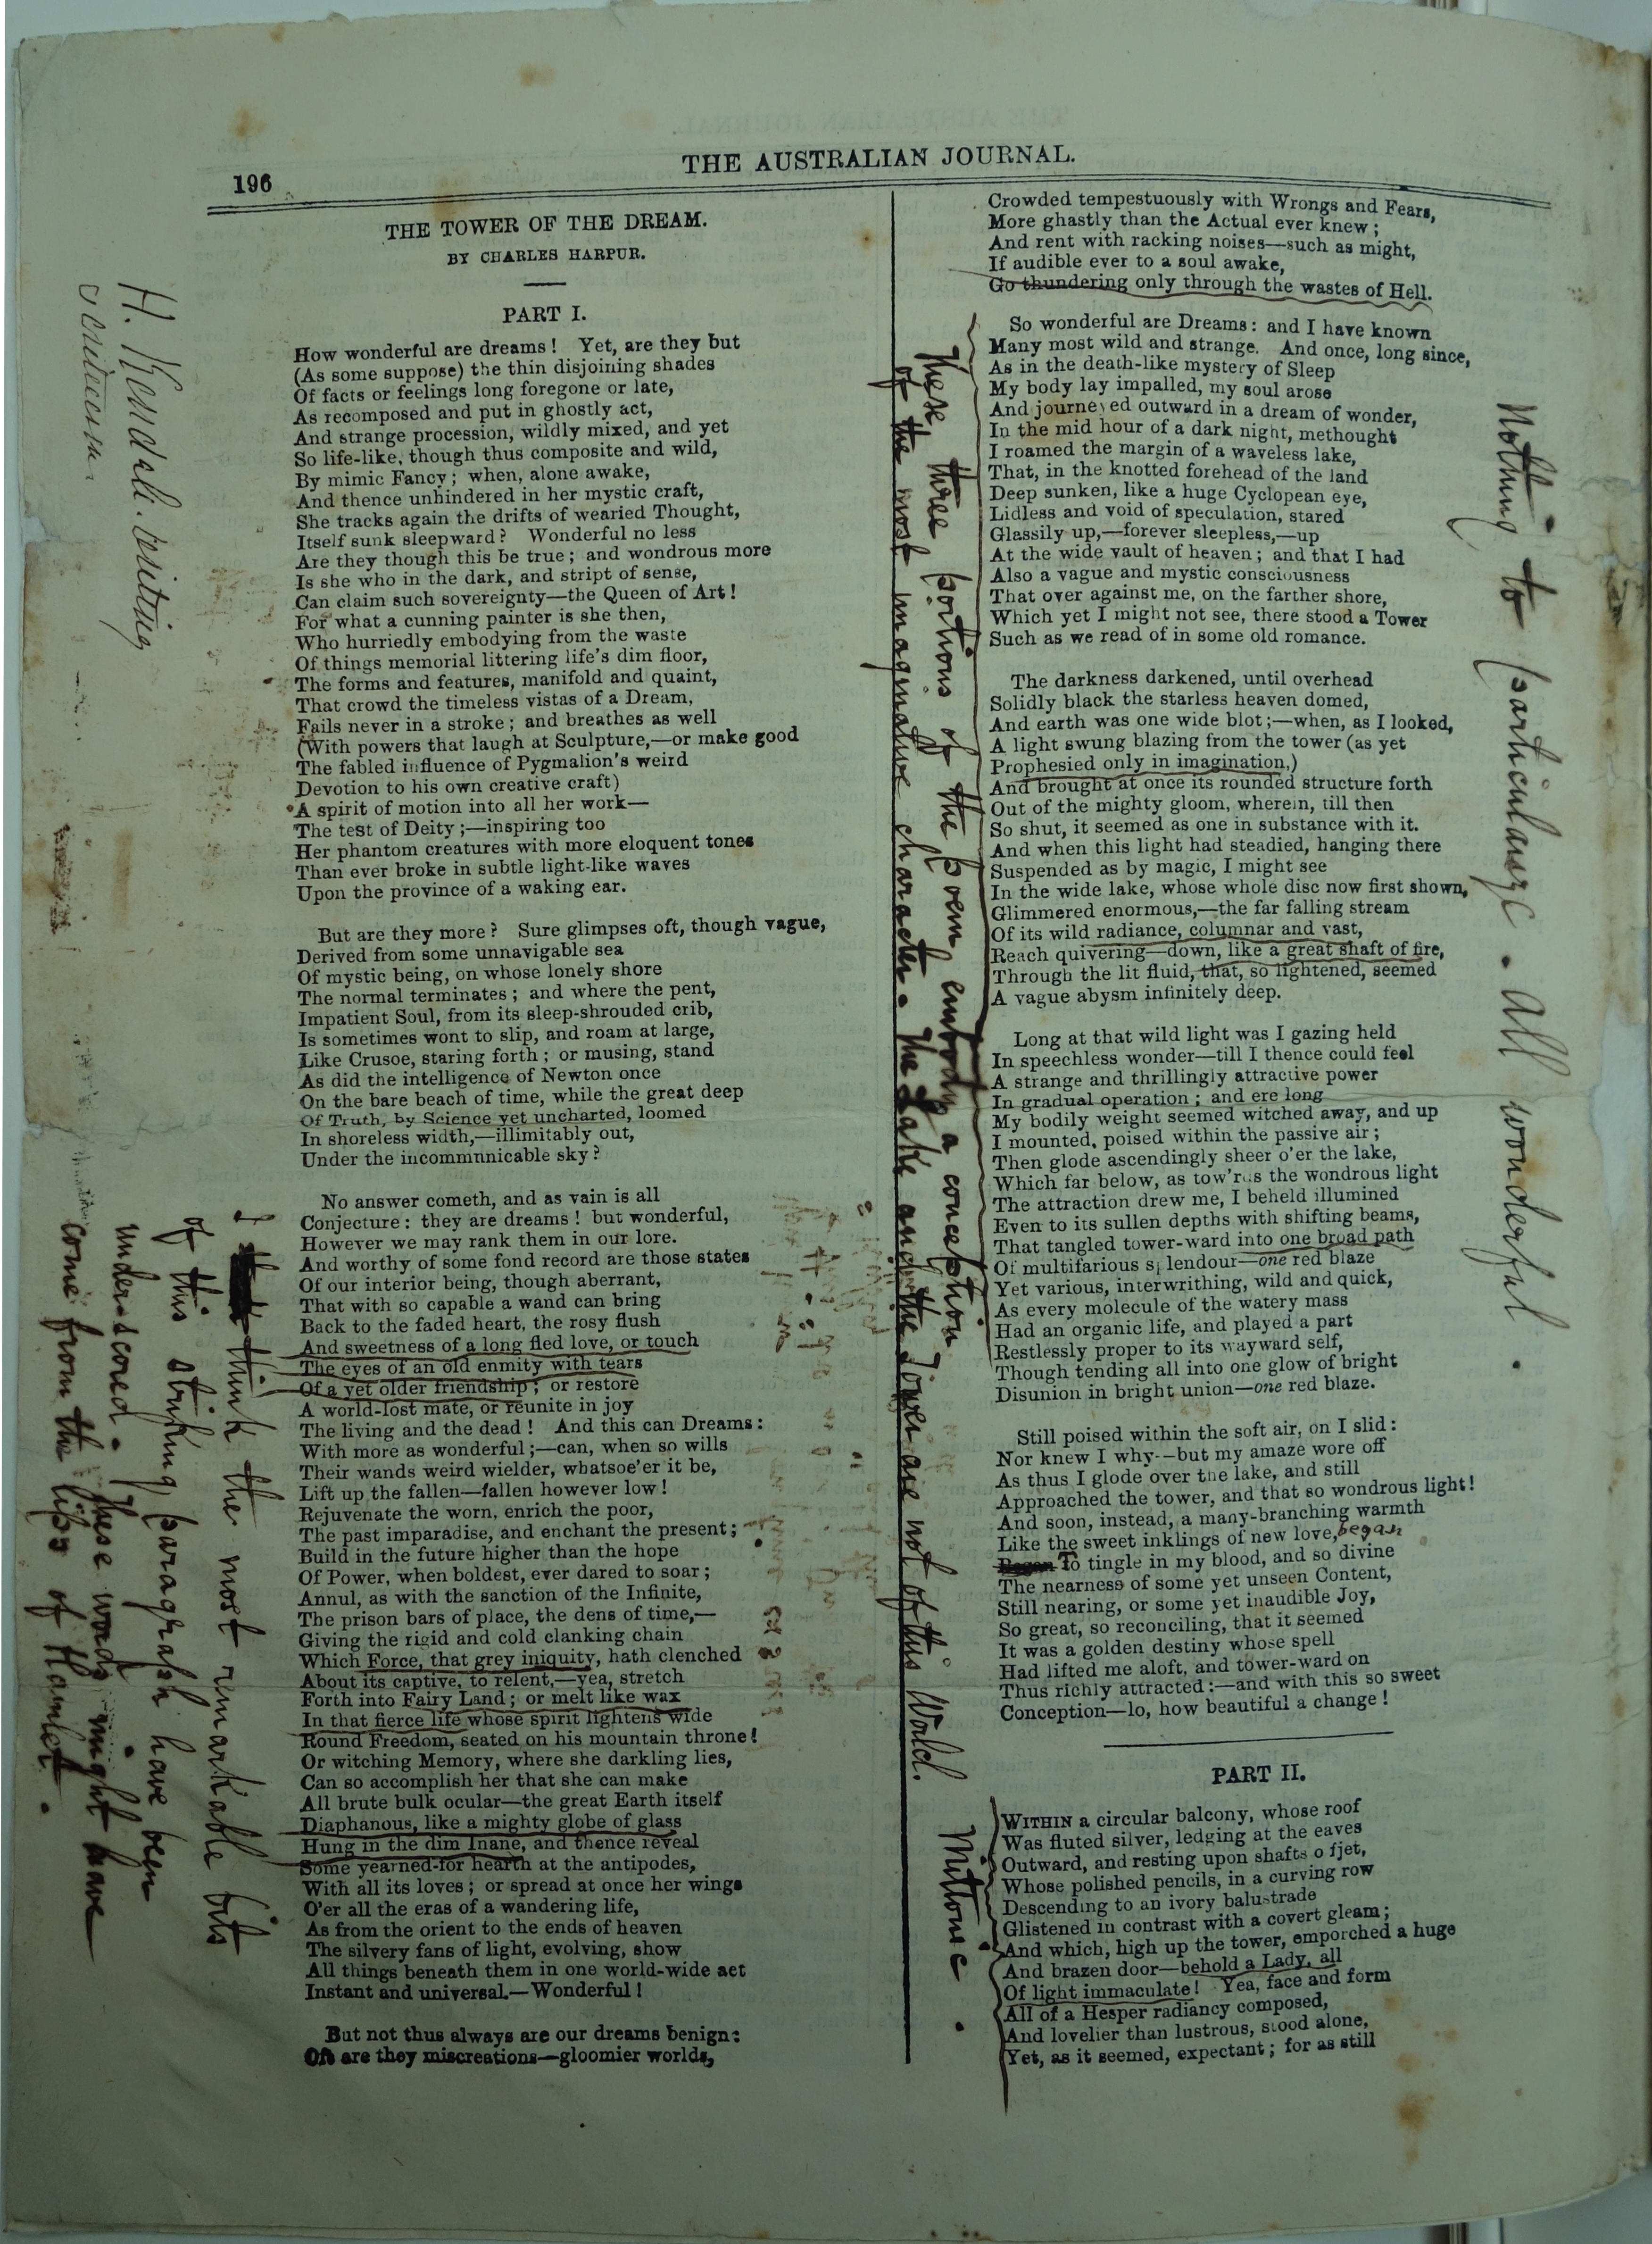 196
THE AUSTRALIAN JOURNAL.
THE TOWER OF THE DREAM.
BY CHARLES HARPUR.
PART I.
How wonderful are dreams! Yet, are they but
(As some suppose) the thin disjoining shades
Of facts or feelings long foregone or late,
As recomposed and put in ghostly act,
And strange procession, wildly mixed, and yet
So life-like, though thus composite and wild,
By mimic Fancy; when, alone awake,
And thence unhindered in her mystic craft,
She tracks again the drifts of wearied Thought,
Itself sunk sleepward? Wonderful no less
Are they though this be true; and wondrous more
Is she who in the dark, and stript of sense,
Can claim such sovereignty—the Queen of Art!
For what a cunning painter is she then,
Who hurriedly embodying from the waste
Of things memorial littering life's dim floor,
The forms and features, manifold and quaint,
That crowd the timeless vistas of a Dream,
Fails never in a stroke; and breathes as well
(With powers that laugh at Sculpture,—or make good
The fabled influence of Pygmalion's weird
Devotion to his own creative craft)
A spirit of motion into all her work—
The test of Deity;—inspiring too
Her phantom creatures with more eloquent tones
Than ever broke in subtle light-like waves
Upon the province of a waking ear.
But are they more? Sure glimpses oft, though vague,
Derived from some unnavigable sea
Of mystic being, on whose lonely shore
The normal terminates; and where the pent,
Impatient Soul, from its sleep-shrouded crib,
Is sometimes wont to slip, and roam at large,
Like Crusoe, staring forth; or musing, stand
As did the intelligence of Newton once
On the bare beach of time, while the great deep
Of Truth, by Science yet uncharted, loomed
In shoreless width,—illimitably out,
Under the incommunicable sky?
No answer cometh, and as vain is all
Conjecture: they are dreams! but wonderful,
However we may rank them in our lore.
And worthy of some fond record are those states
Of our interior being, though aberrant,
That with so capable a wand can bring
Back to the faded heart, the rosy flush
And sweetness of a long fled love, or touch
The eyes of an old enmity with tears
Of a yet older friendship; or restore
A world-lost mate, or reunite in joy
The living and the dead! And this can Dreams:
With more as wonderful;—can, when so wills
Their wands weird wielder, whatsoe'er it be,
Lift up the fallen—fallen however low!
Rejuvenate the worn, enrich the poor,
The past imparadise, and enchant the present;
Build in the future higher than the hope
Of Power, when boldest, ever dared to soar;
Annul, as with the sanction of the Infinite,
The prison bars of place, the dens of time,—
Giving the rigid and cold clanking chain
Which Force, that grey iniquity, hath clenched
About its captive, to relent,—yea, stretch
Forth into Fairy Land; or melt like wax
In that fierce life whose spirit lightens wide
Round Freedom, seated on his mountain throne!
Or witching Memory, where she darkling lies,
Can so accomplish her that she can make
All brute bulk ocular—the great Earth itself
Diaphanous, like a mighty globe of glass
Hung in the dim Inane, and thence reveal
Some yearned-for hearth at the antipodes,
With all its loves; or spread at once her wings
O'er all the eras of a wandering life,
As from the orient to the ends of heaven
The silvery fans of light, evolving, show
All things beneath them in one world-wide act
Instant and universal.—Wonderful!
But not thus always are our dreams benign:
Oft are they miscreations—gloomier worlds,
Crowded tempestuously with Wrongs and Fears,
More ghastly than the Actual ever knew;
And rent with racking noises—such as might,
If audible ever to a soul awake,
Go thundering only through the wastes of Hell.
So wonderful are Dreams: and I have known
Many most wild and strange. And once, long since,
As in the death-like mystery of Sleep
My body lay impalled, my soul arose
And journeyed outward in a dream of wonder,
In the mid hour of a dark night, methought
I roamed the margin of a waveless lake,
That, in the knotted forehead of the land
Deep sunken, like a huge Cyclopean eye,
Lidless and void of speculation, stared
Glassily up,—forever sleepless,—up
At the wide vault of heaven; and that I had
Also a vague and mystic consciousness
That over against me, on the farther shore,
Which yet I might not see, there stood a Tower
Such as we read of in some old romance.
The darkness darkened, until overhead
Solidly black the starless heaven domed,
And earth was one wide blot;—when, as I looked,
A light swung blazing from the tower (as yet
Prophesied only in imagination,)
And brought at once its rounded structure forth
Out of the mighty gloom, wherein, till then
So shut, it seemed as one in substance with it.
And when this light had steadied, hanging there
Suspended as by magic, I might see
In the wide lake, whose whole disc now first shown,
Glimmered enormous,—the far falling stream
Of its wild radiance, columnar and vast,
Reach quivering—down, like a great shaft of fire,
Through the lit fluid, that, so lightened, seemed
A vague abysm infinitely deep.
Long at that wild light was I gazing held
In speechless wonder—till I thence could feel
A strange and thrillingly attractive power
In gradual operation; and ere long
My bodily weight seemed witched away, and up
I mounted, poised within the passive air;
Then glode ascendingly sheer o'er the lake,
Which far below, as tow'rds the wondrous light
The attraction drew me, I beheld illumined
Even to its sullen depths with shifting beams,
That tangled tower-ward into one broad path
Of multifarious splendour—one red blaze
Yet various, interwrithing, wild and quick,
As every molecule of the watery mass
Had an organic life, and played a part
Restlessly proper to its wayward self,
Though tending all into one glow of bright
Disunion in bright union—one red blaze.
Still poised within the soft air, on I slid:
Nor knew I why--but my amaze wore off
As thus I glode over the lake, and still
Approached the tower, and that so wondrous light!
And soon, instead, a many-branching warmth
Like the sweet inklings of new love, began
Began To tingle in my blood, and so divine
The nearness of some yet unseen Content,
Still nearing, or some yet inaudible Joy,
So great, so reconciling, that it seemed
It was a golden destiny whose spell
Had lifted me aloft, and tower-ward on
Thus richly attracted:—and with this so sweet
Conception—lo, how beautiful a change!
PART II.
WITHIN a circular balcony, whose roof
Was fluted silver, ledging at the eaves
Outward, and resting upon shafts o fjet,
Whose polished pencils, in a curving row
Descending to an ivory balustrade
Glistened in contrast with a covert gleam;
And which, high up the tower, emporched a huge
And brazen door—behold a Lady, all
Of light immaculate! Yea, face and form
All of a Hesper radiancy composed,
And lovelier than lustrous, stood alone,
Yet, as it seemed, expectant; for as still
H. Kendall. writing
criticism.
I think the most remarkable bits
of this striking paragraph have been
underscored. These words might have
come from the lips of Hamlet.
These three portions of the poem embody a conception
of the most imaginative character. The Lake and the Tower are not of this World.
Miltonic.
Nothing to particularize. All wonderful.